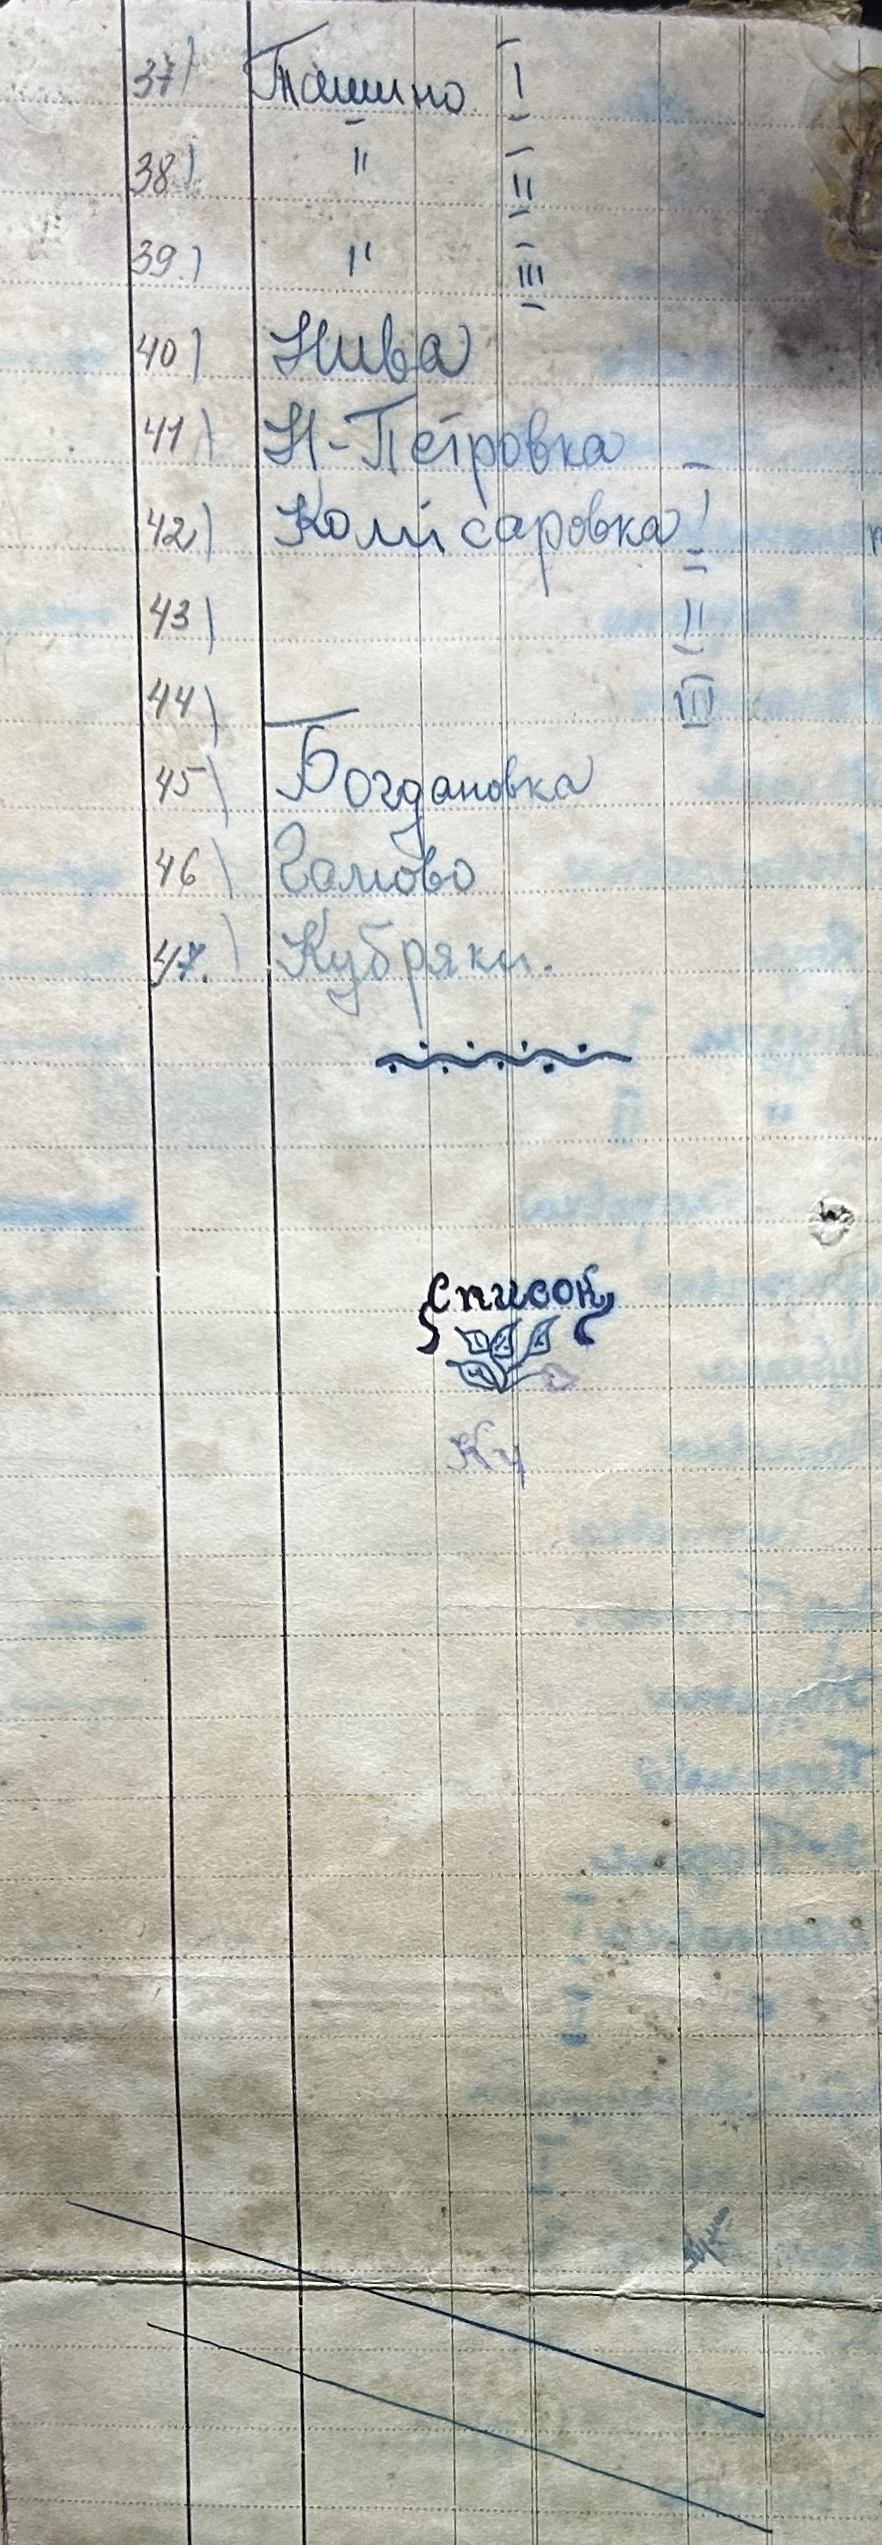 37) Ташино I
38) " II
39.) " III
40) Нива
41) Н-Петровка
42) Комисаровка I
43) II
44) III
45) Богдановка
46) Гамово
47.) Кубряки.
Список
Ку